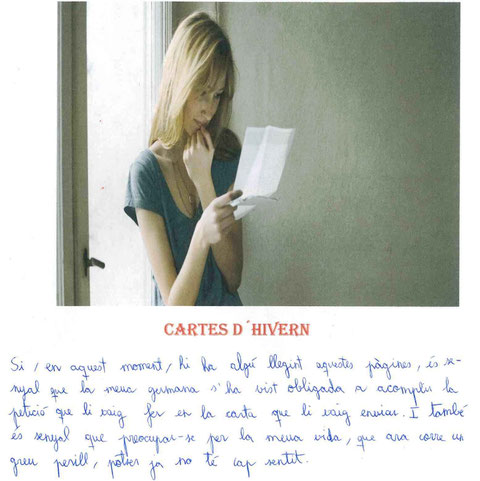 CARTES D´HIVERN
Si, en aquest moment, hi ha algú llegint aquestes pàgines, és se-
nyal que la meua germana s'ha vist obligada a acomplir la
petició que li vaig fer en la carta que li vaig enviar. I també
és senyal que preocupar-se per la meua vida, que ara corre un
greu perill, potser ja no té cap sentit.